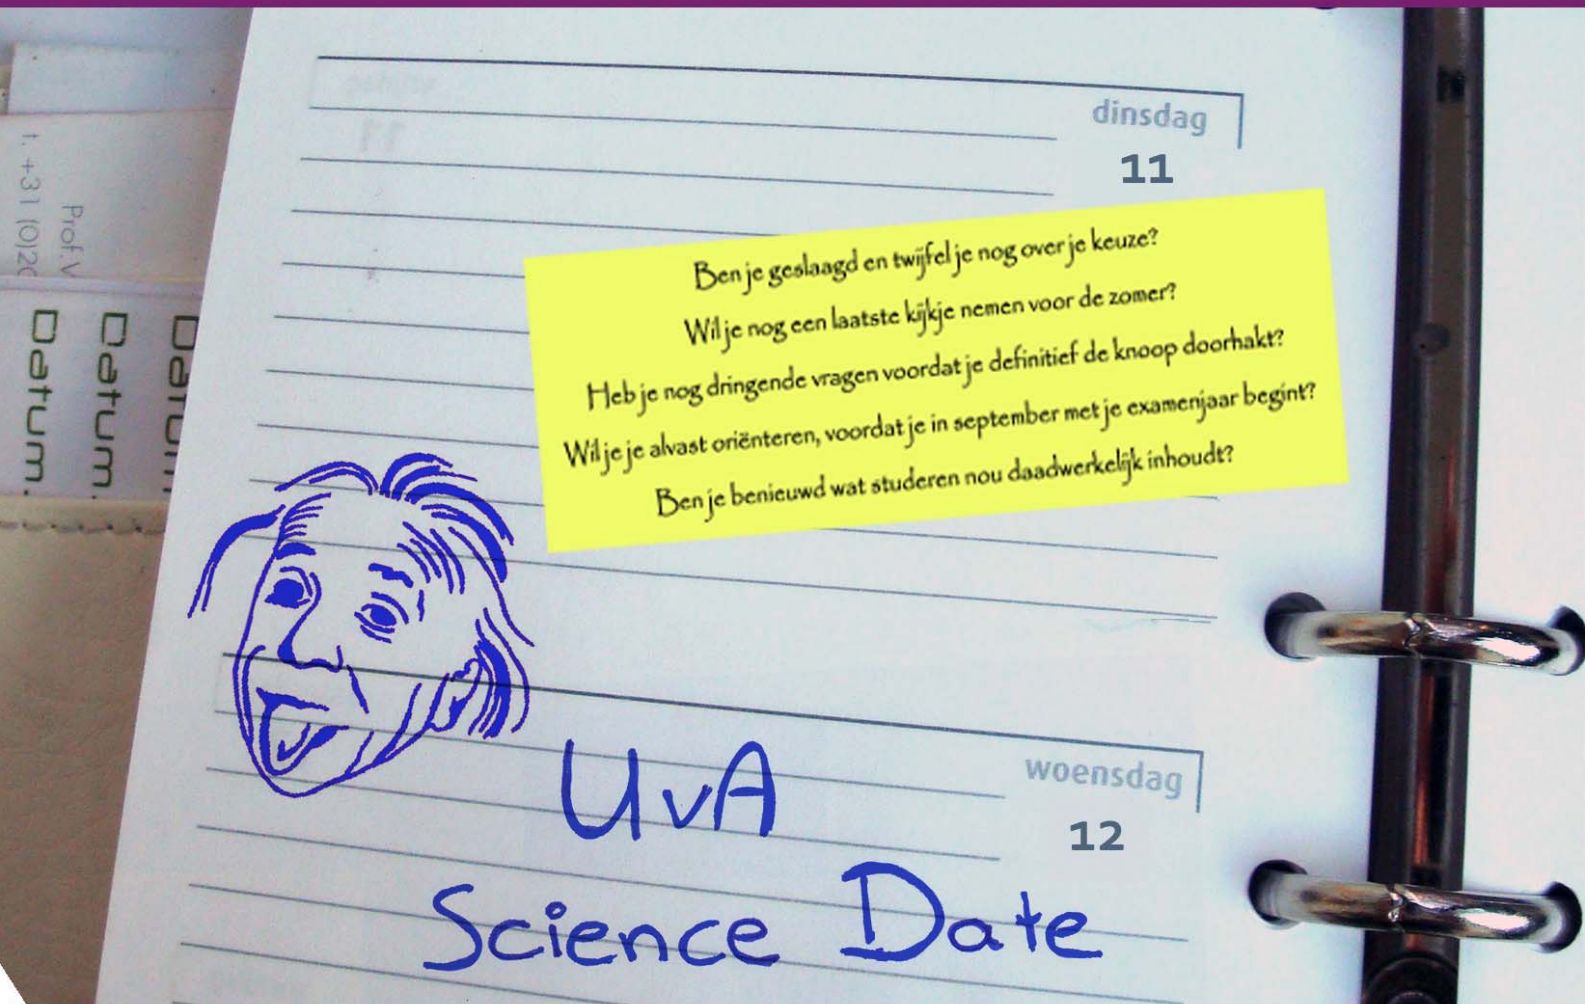 dinsdag
11
Ben je geslaagd en twijfel je nog over je keuze?
Wil je nog een laatste kijkje nemen voor de zomer?
Heb je nog dringende vragen voordat je definitief de knoop doorhakt?
Wil je je alvast oriënteren, voordat je in september met je examenjaar begint?
Ben je benieuwd wat studeren nou daadwerkelijk inhoudt?
t. +31 (0)20
Prof.
Datum.
Datum.
Datum
woensdag
12
UvA
Science Date